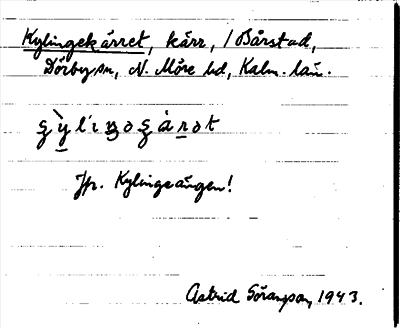 Kylingekärret, kärr, / Bårstad,
Dörby sn, N. Möre hd, Kalm. län.
Jfr. Kylingeängen!
Astrid Göransson, 1943.